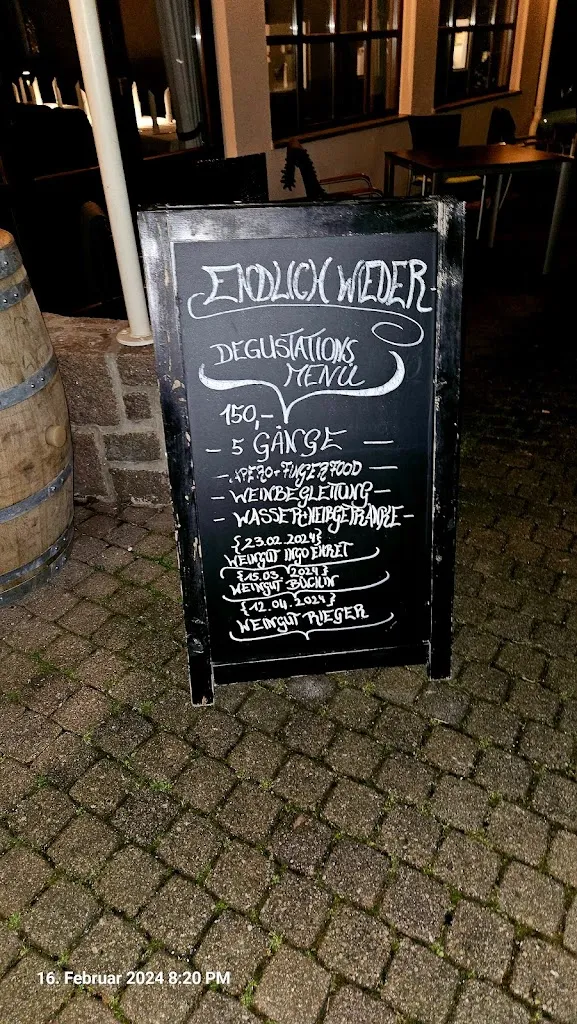 ENDLICH WIEDER
DEGUSTATIONS
MENÜ
150,-
- 5 GÄNGE -
- APERO + FINGERFOOD -
- WEINBEGLEITUNG -
- WASSER + HEIßGETRÄNKE -
{23.02.2024}
WEINGUT INGO
{15.03.2024}
WEINGUT
{12.04.2024}
WEINGUT RIEGER
16. Februar 2024 8:20 PM